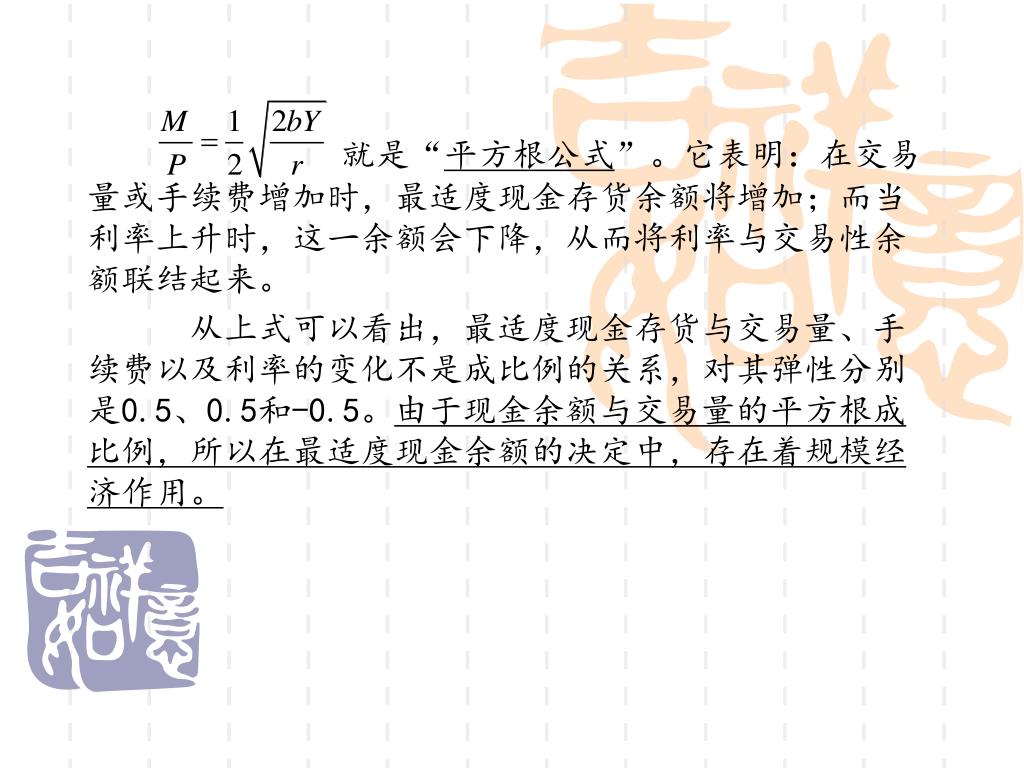 M/P = 1/2 √(2bY/r) 就是“平方根公式”。它表明：在交易
量或手续费增加时，最适度现金存货余额将增加；而当
利率上升时，这一余额会下降，从而将利率与交易性余
额联结起来。
从上式可以看出，最适度现金存货与交易量、手
续费以及利率的变化不是成比例的关系，对其弹性分别
是0.5、0.5和-0.5。由于现金余额与交易量的平方根成
比例，所以在最适度现金余额的决定中，存在着规模经
济作用。
吉祥如意
吉祥如意